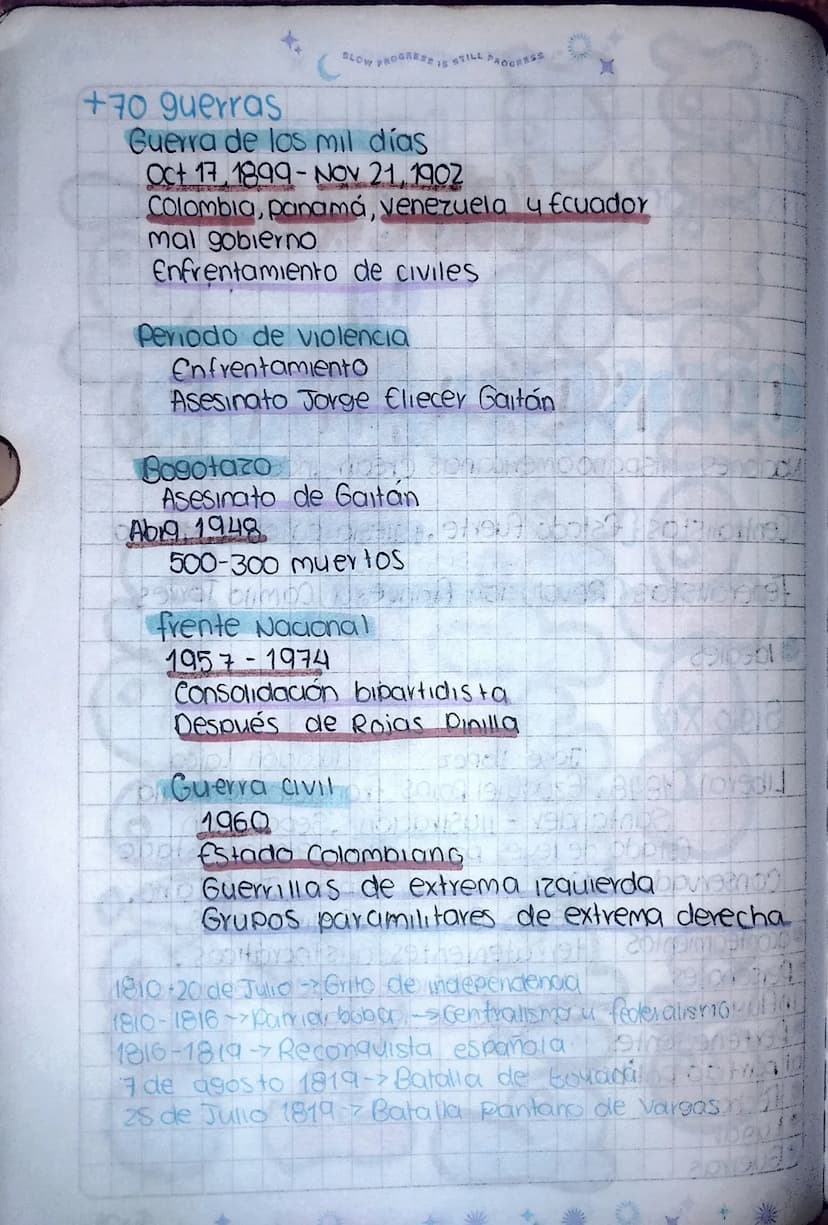 SLOW PROGRESS IS STILL PROGRESS
+70 guerras
Guerra de los mil días
Oct 17, 1899 - Nov 21, 1902
Colombia, panamá, venezuela y Ecuador
mal gobierno
Enfrentamiento de civiles
Periodo de violencia
Enfrentamiento
Asesinato Jorge Eliecer Gaitán
Bogotazo
Asesinato de Gaitán
Abr9, 1948
500-300 muertos
frente Nacional
1957 - 1974
Consolidación bipartidista
Después de Rojas Pinilla
Guerra civil
1960
Estado Colombiano
Guerrillas de extrema izquierda
Grupos paramilitares de extrema derecha
1810-20 de Julio -> Grito de independencia
1810-1816 -> Patria boba -> Centralismo y federalismo
1816-1819 -> Reconquista española
7 de agosto 1819 -> Batalla de Boyacá
25 de Julio 1819 -> Batalla pantano de Vargas